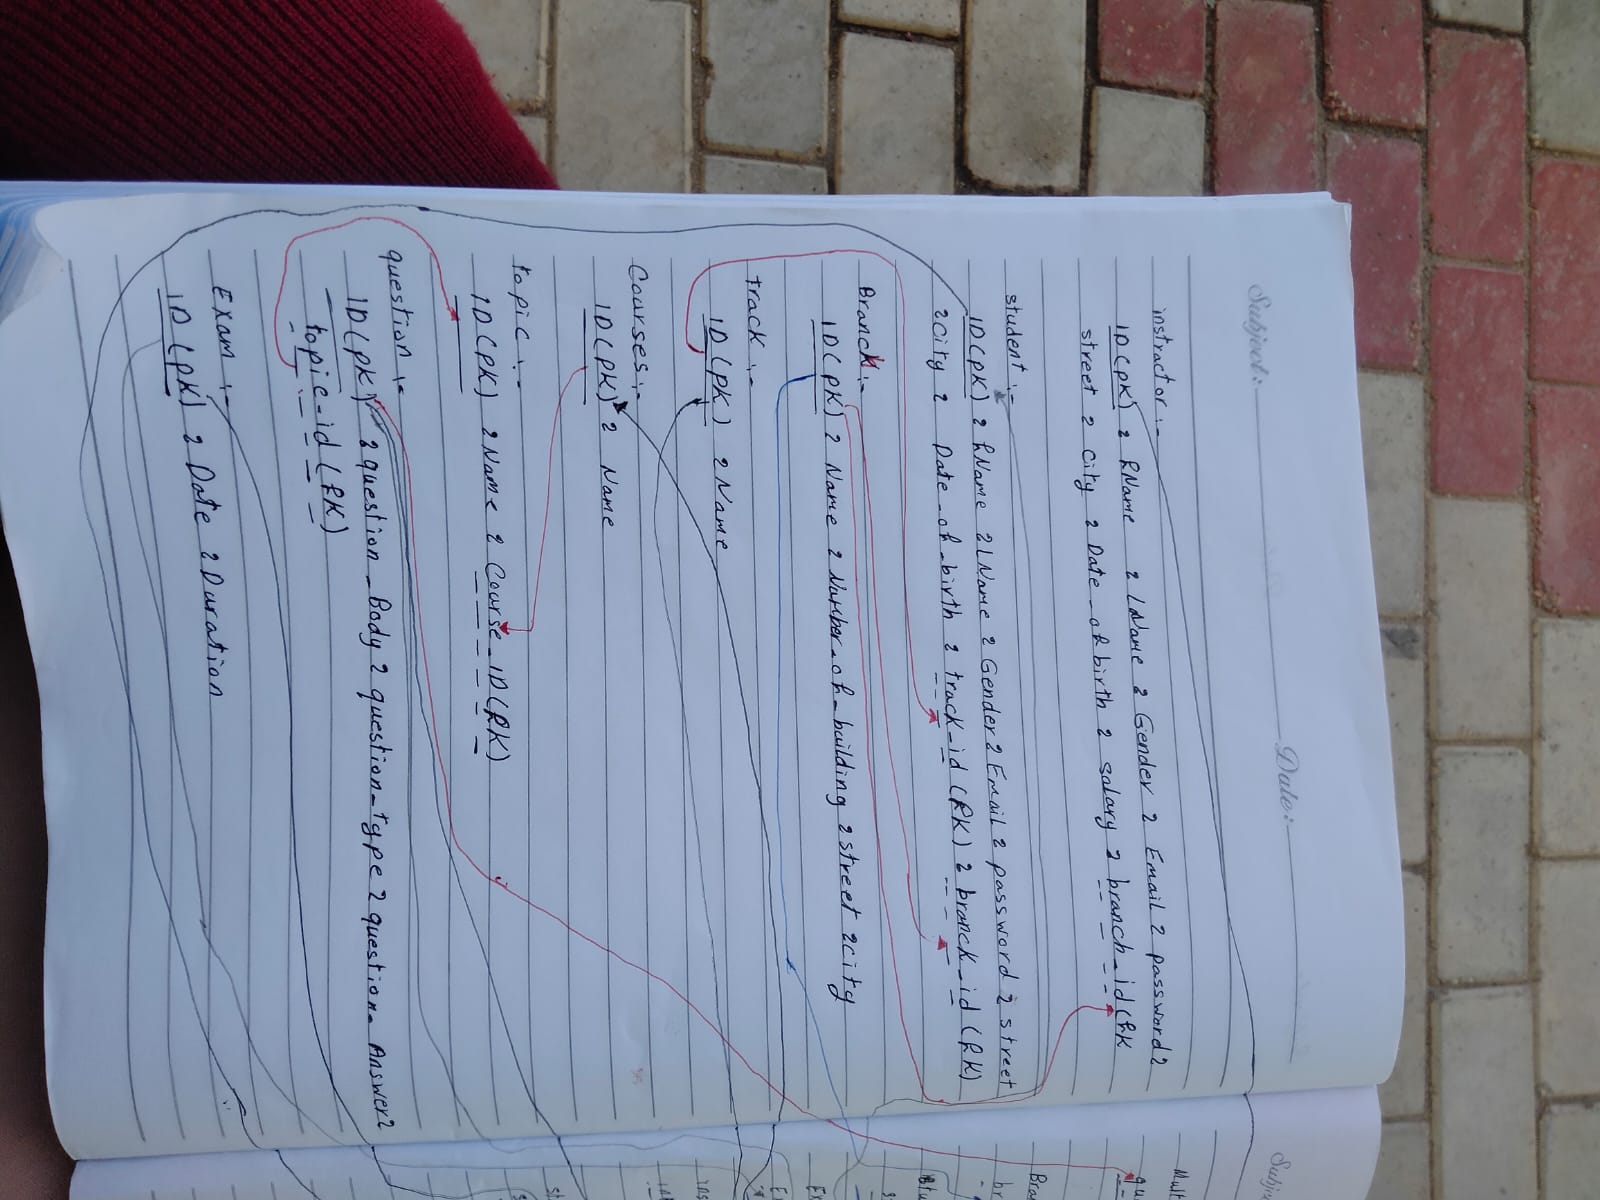 Subject:
Date:
instractor :-
ID(pk) 2 fName 2 LName 2 Gender 2 Email 2 password 2
street 2 City 2 Date_of birth 2 salary 2 branch_id(fk
student :-
ID(pk) 2 fName 2 LName 2 Gender 2 Email 2 password 2 street
2 City 2 Date_of_birth 2 track_id (fK) 2 branck_id (fK)
Branck :-
ID(pk) 2 Name 2 Number_of_building 2 street 2 city
track :-
ID (pk) 2 Name
Courses :-
ID(pk) 2 Name
topic :-
ID(pk) 2 Name 2 Course_ID(fK)
question :-
ID(pk) 2 question_Body 2 question_type 2 question_Answer 2
topic_id (fK)
Exam :-
ID (pk) 2 Date 2 Duration